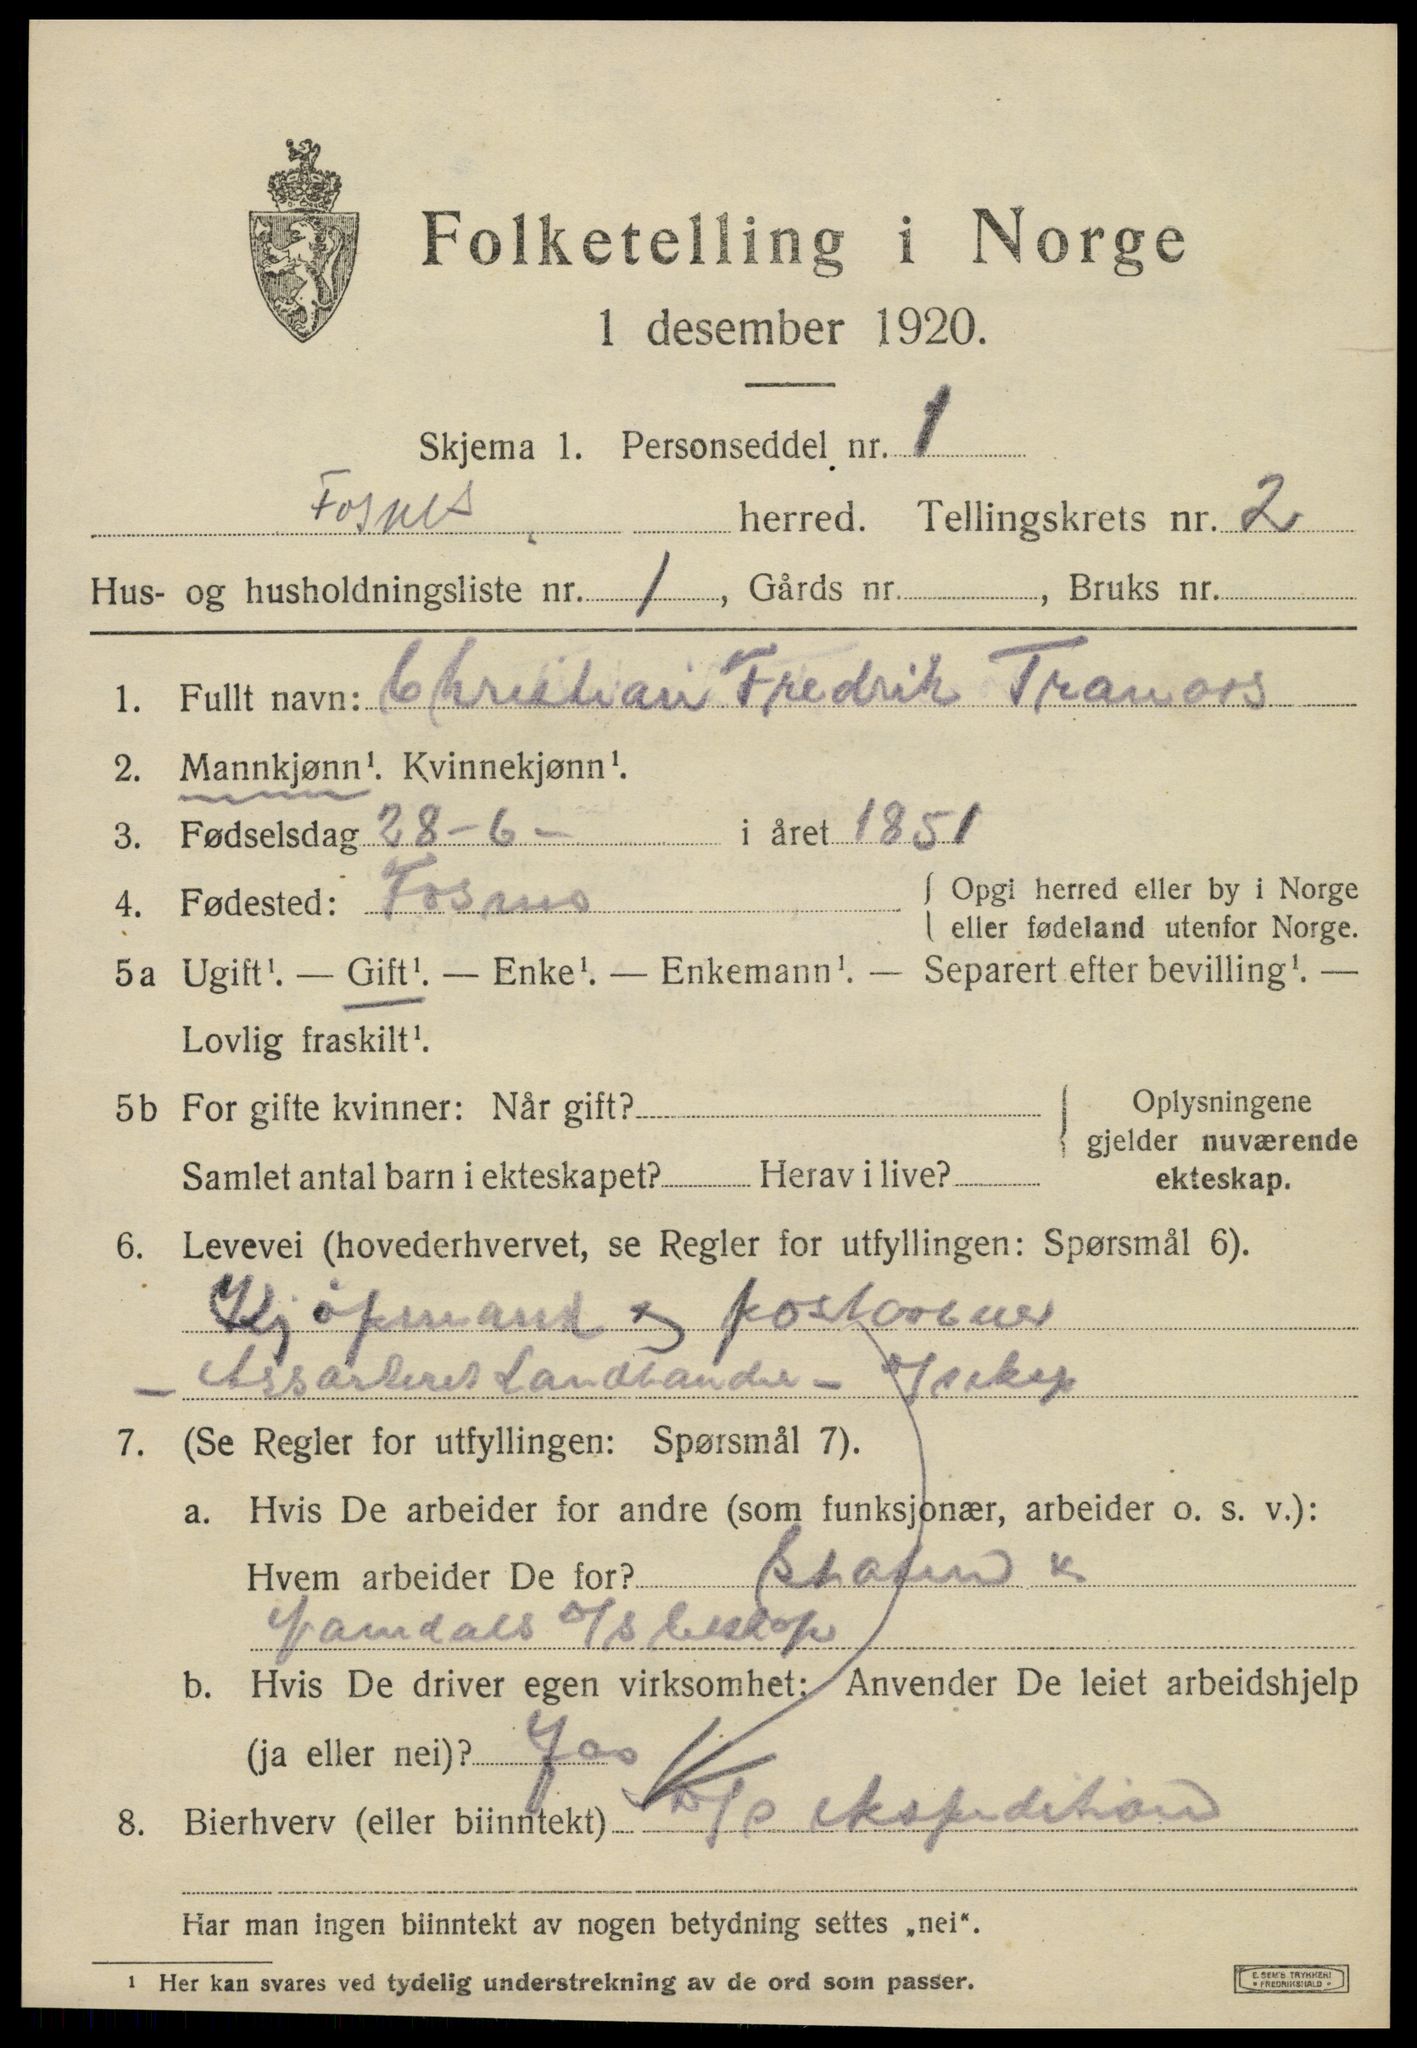 Folketelling i Norge
1 desember 1920.
Skjema 1. Personseddel nr. 1
Fosnes herred. Tellingskrets nr. 2
Hus- og husholdningsliste nr. 1, Gårds nr. , Bruks nr.
1. Fullt navn: Christian Fredrik Tranaas
2. Mannkjønn¹. Kvinnekjønn¹.
3. Fødselsdag 28-6- i året 1851
4. Fødested: Fosnes { Opgi herred eller by i Norge
eller fødeland utenfor Norge.
5a Ugift¹. — Gift¹. — Enke¹. — Enkemann¹. — Separert efter bevilling¹. —
Lovlig fraskilt¹.
5b For gifte kvinner: Når gift? { Oplysningene
gjelder nuværende
Samlet antal barn i ekteskapet? Herav i live? ekteskap.
6. Levevei (hovederhvervet, se Regler for utfyllingen: Spørsmål 6).
Kjøpmand og postaabner
- Assorteret Landhandel - D/S eksp
7. (Se Regler for utfyllingen: Spørsmål 7).
a. Hvis De arbeider for andre (som funksjonær, arbeider o. s. v.):
Hvem arbeider De for? Staten
Namdals D/S selskap
b. Hvis De driver egen virksomhet: Anvender De leiet arbeidshjelp
(ja eller nei)? Ja
8. Bierhverv (eller biinntekt) D/S ekspedition
Har man ingen biinntekt av nogen betydning settes „nei“.
¹ Her kan svares ved tydelig understrekning av de ord som passer.
E. SEM'S TRYKKERI
FREDRIKSHALD